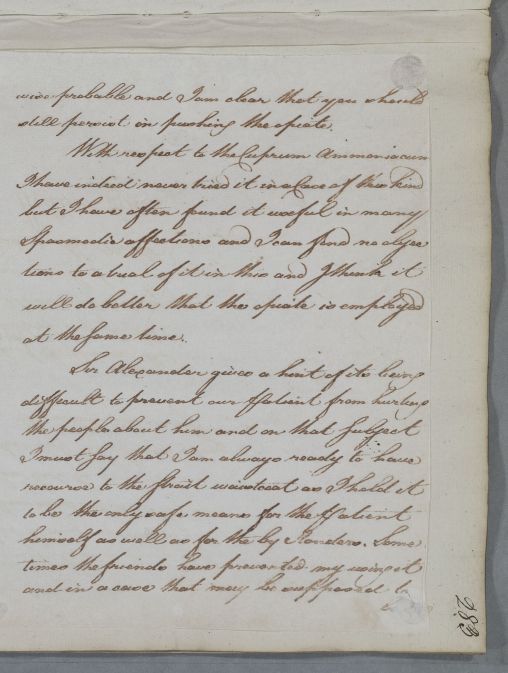 wise probable and I am clear that you should
still persist in pushing the opiate.
With respect to the Cuprum Ammoniacum
I have indeed never tried it in a Case of this Kind
but I have often found it useful in many
Spasmodic affections and I can find no objec
tions to a trial of it in this and I think it
will do better that the opiate is employed
at the same time.
Sir Alexander gives a hint of its being
difficult to prevent our Patient from hurting
the people about him and on that Subject
I must say that I am always ready to have
recourse to the strait waistcoat as I hold it
to be the only safe means for the Patient
himself as well as for the by Standers. Some
times the friends have prevented my using it
and in a case that may be supposed to
283